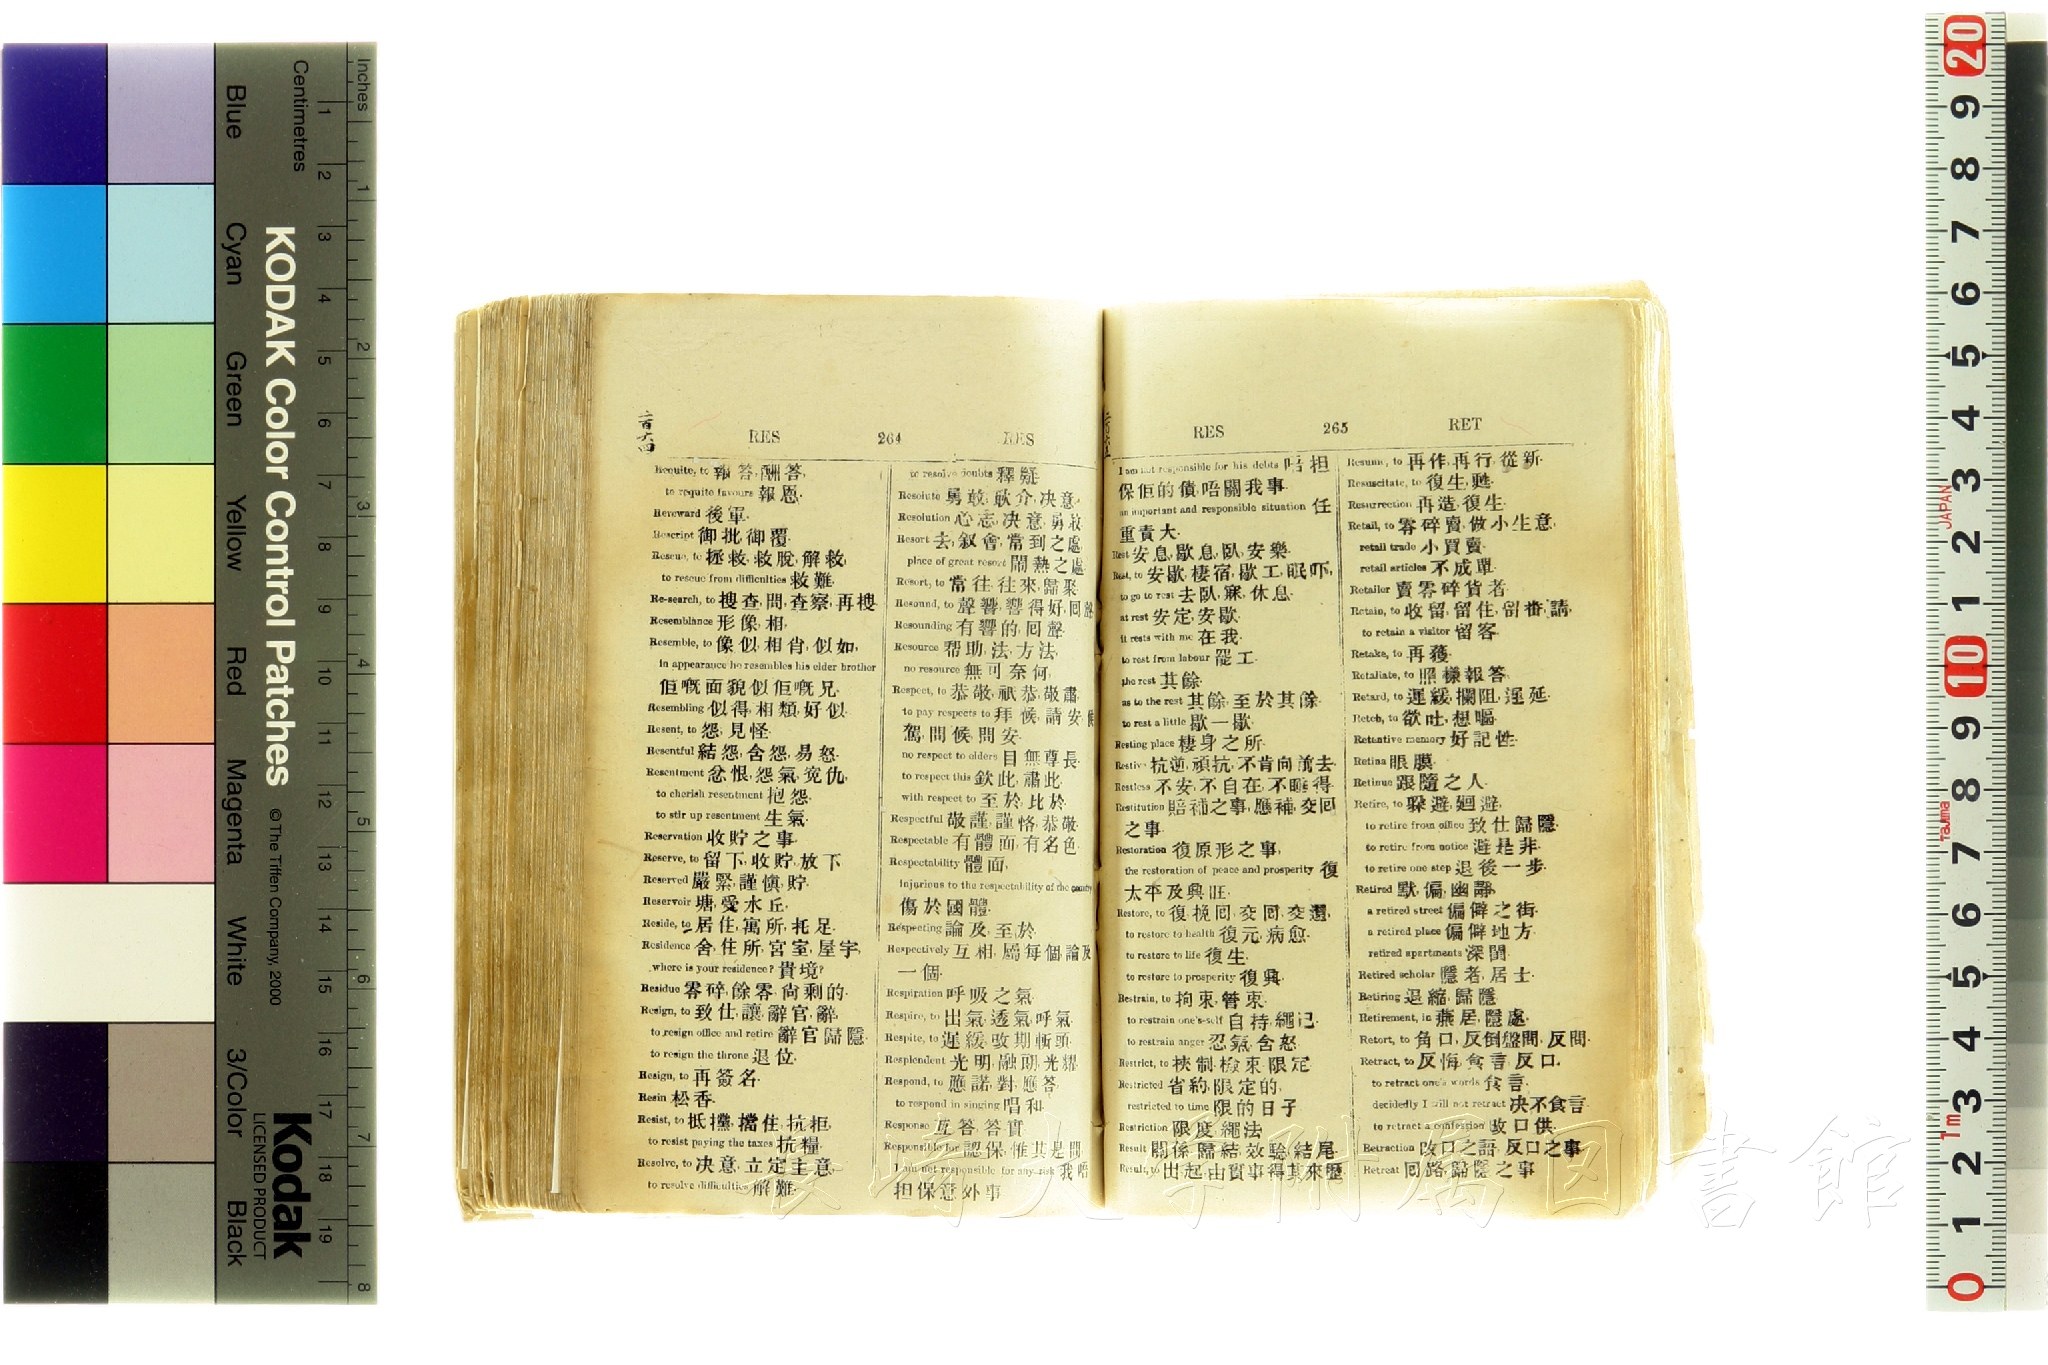 Inches
Centimetres
1 2 3 4 5 6 7 8 9 10 11 12 13 14 15 16 17 18 19
1 2 3 4 5 6 7 8
KODAK Color Control Patches
© The Tiffen Company, 2000
Kodak
LICENSED PRODUCT
Blue
Cyan
Green
Yellow
Red
Magenta
White
3/Color
Black
二百六四
RES 264 RES
Requite, to 報答,酬答,
to requite favours 報恩.
Rereward 後軍.
Rescript 御批,御覆.
Rescue, to 拯救,救脫,解救,
to rescue from difficulties 救難.
Re-search, to 搜查,問,查察,再搜
Resemblance 形像,相,
Resemble, to 像似,相肖,似如,
in appearance he resembles his elder brother
佢嘅面貌似佢嘅兄.
Resembling 似得,相類,好似.
Resent, to 怨,見怪.
Resentful 結怨,含怨,易怒.
Resentment 忿恨,怨氣,寃仇,
to cherish resentment 抱怨.
to stir up resentment 生氣.
Reservation 收貯之事.
Reserve, to 留下,收貯,放下
Reserved 嚴緊,謹愼,貯.
Reservoir 塘,
Reside, to 居住,寓所,托足.
Residence 舍,住所,宮室,屋宇,
where is your residence? 貴境?
Residue 零碎,餘零,尙剩的.
Resign, to 致仕,讓,辭官,辭,
to resign office and retire 辭官歸隱.
to resign the throne 退位.
Resign, to 再簽名.
Resin 松香.
Resist, to 抵攩,擋住,抗拒,
to resist paying the taxes 抗糧.
Resolve, to 决意,立定主意.
to resolve difficulties 解難.
to resolve doubts 釋疑.
Resolute 勇敢,耿介,决意,
Resolution 心志,决意,勇敢
Resort 去,叙會,常到之處
place of great resort 鬧熱之處
Resort, to 常往,往來,歸聚
Resound, to 聲響,響得好,回聲
Resounding 有響的,回聲.
Resource 帮助,法,方法,
no resource 無可奈何,
Respect, to 恭敬,祇恭,敬肅
to pay respects to 拜候,請安,候
駕,問候,問安.
no respect to elders 目無尊長.
to respect this 欽此,肅此.
with respect to 至於,比於.
Respectful 敬謹,謹恪,恭敬.
Respectable 有體面,有名色.
Respectability 體面,
injurious to the respectability of the country
傷於國體.
Respecting 論及,至於.
Respectively 互相,屬每個,論及
一個.
Respiration 呼吸之氣.
Respire, to 出氣,透氣,呼氣.
Respite, to 遲緩,改期斬頭.
Resplendent 光明,融朗,光耀.
Respond, to 應諾,對,應答,
to respond in singing 唱和.
Response 互答,答實.
Responsible for 認保,惟其是問
I am not responsible for any risk 我唔
担保意外事
RES 265 RET
I am not responsible for his debts 唔担
保佢的債,唔關我事.
an important and responsible situation 任
重責大.
Rest 安息,歇息,臥,安樂.
Rest, to 安歇,棲宿,歇工,眠吓,
to go to rest 去臥,寐,休息.
at rest 安定,安歇.
it rests with me 在我.
to rest from labour 罷工.
the rest 其餘.
as to the rest 其餘,至於其餘.
to rest a little 歇一歇.
Resting place 棲身之所.
Restive 抗逆,頑抗,不肯向前去
Restless 不安,不自在,不睡得.
Restitution 賠補之事,應補,交回
之事.
Restoration 復原形之事,
the restoration of peace and prosperity 復
太平及興旺.
Restore, to 復,挽回,交回,交還,
to restore to health 復元,病愈.
to restore to life 復生.
to restore to prosperity 復興.
Restrain, to 拘束,管束.
to restrain one's-self 自持,繩己.
to restrain anger 忍氣,含怒
Restrict, to 挾制,檢束,限定
Restricted 省約,限定的,
restricted to time 限的日子
Restriction 限度,繩法
Result 關係,歸結,效驗,結尾.
Result, to 出起,由實事得其來歷
Resume, to 再作,再行,從新.
Resuscitate, to 復生,甦.
Resurrection 再造,復生.
Retail, to 零碎賣,做小生意,
retail trade 小買賣.
retail articles 不成單.
Retailer 賣零碎貨者.
Retain, to 收留,留住,留番,請,
to retain a visitor 留客.
Retake, to 再獲.
Retaliate, to 照樣報答,
Retard, to 遲緩,攔阻,遲延.
Retch, to 欲吐,想嘔.
Retentive memory 好記性.
Retina 眼膜.
Retinue 跟隨之人.
Retire, to 躱避,廻避.
to retire from office 致仕歸隱.
to retire from notice 避是非.
to retire one step 退後一步.
Retired 默,偏,幽靜,
a retired street 偏僻之街.
a retired place 偏僻地方.
retired apartments 深閨.
Retired scholar 隱者,居士.
Retiring 退縮,歸隱.
Retirement, in 燕居,隱處.
Retort, to 角口,反倒盤問,反問.
Retract, to 反悔,食言,反口.
to retract one's words 食言.
decidedly I will not retract 决不食言.
to retract a confession 改口供.
Retraction 改口之語,反口之事
Retreat 回路,歸隱之事
長崎大学附属図書館
20 9 8 7 6 5 4 3 2 1 10 9 8 7 6 5 4 3 2 1 0
JAPAN
Tajima
1m